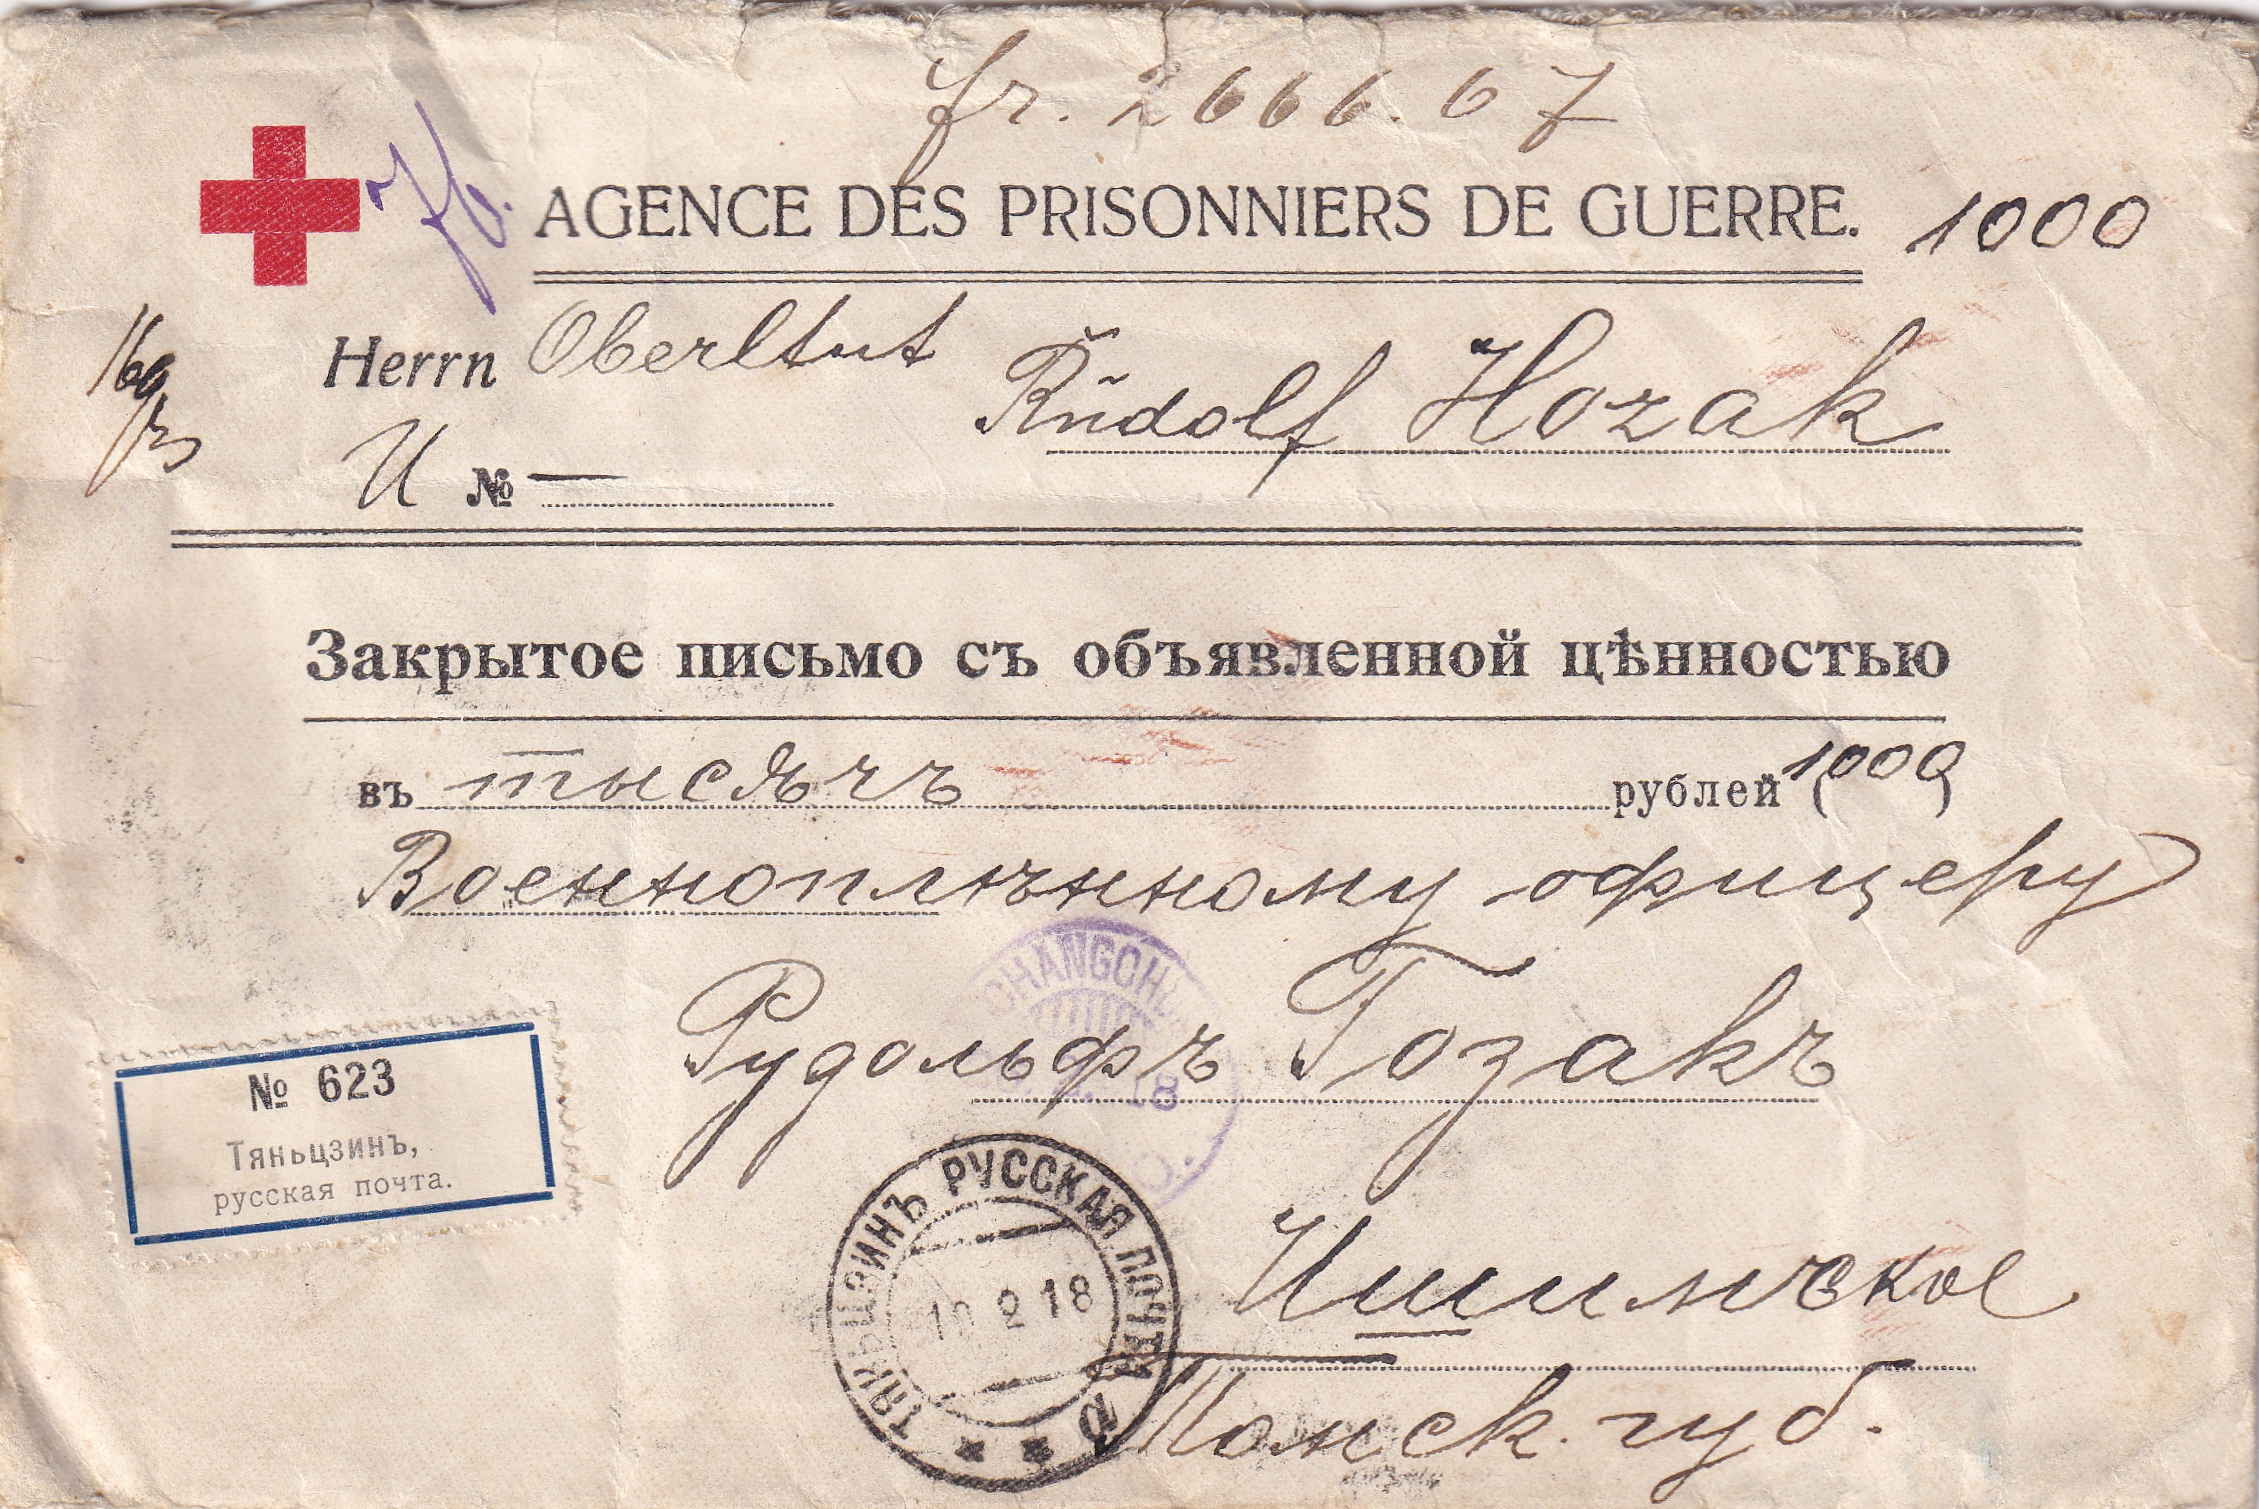 fr. 2666.67
AGENCE DES PRISONNIERS DE GUERRE. 1000
Herrn Oberltnt
Rudolf Hozak
U № —
Закрытое письмо съ объявленной цѣнностью
въ тысячъ рублей (1000)
Военноплѣнному офицеру
Рудольфъ Гозакъ
Ишимское
Томск. губ.
№ 623
Тяньцзинъ,
русская почта.
CHANGOH
18
ТЯНЬЦЗИНЪ РУССКАЯ ПОЧТА
10 2 18